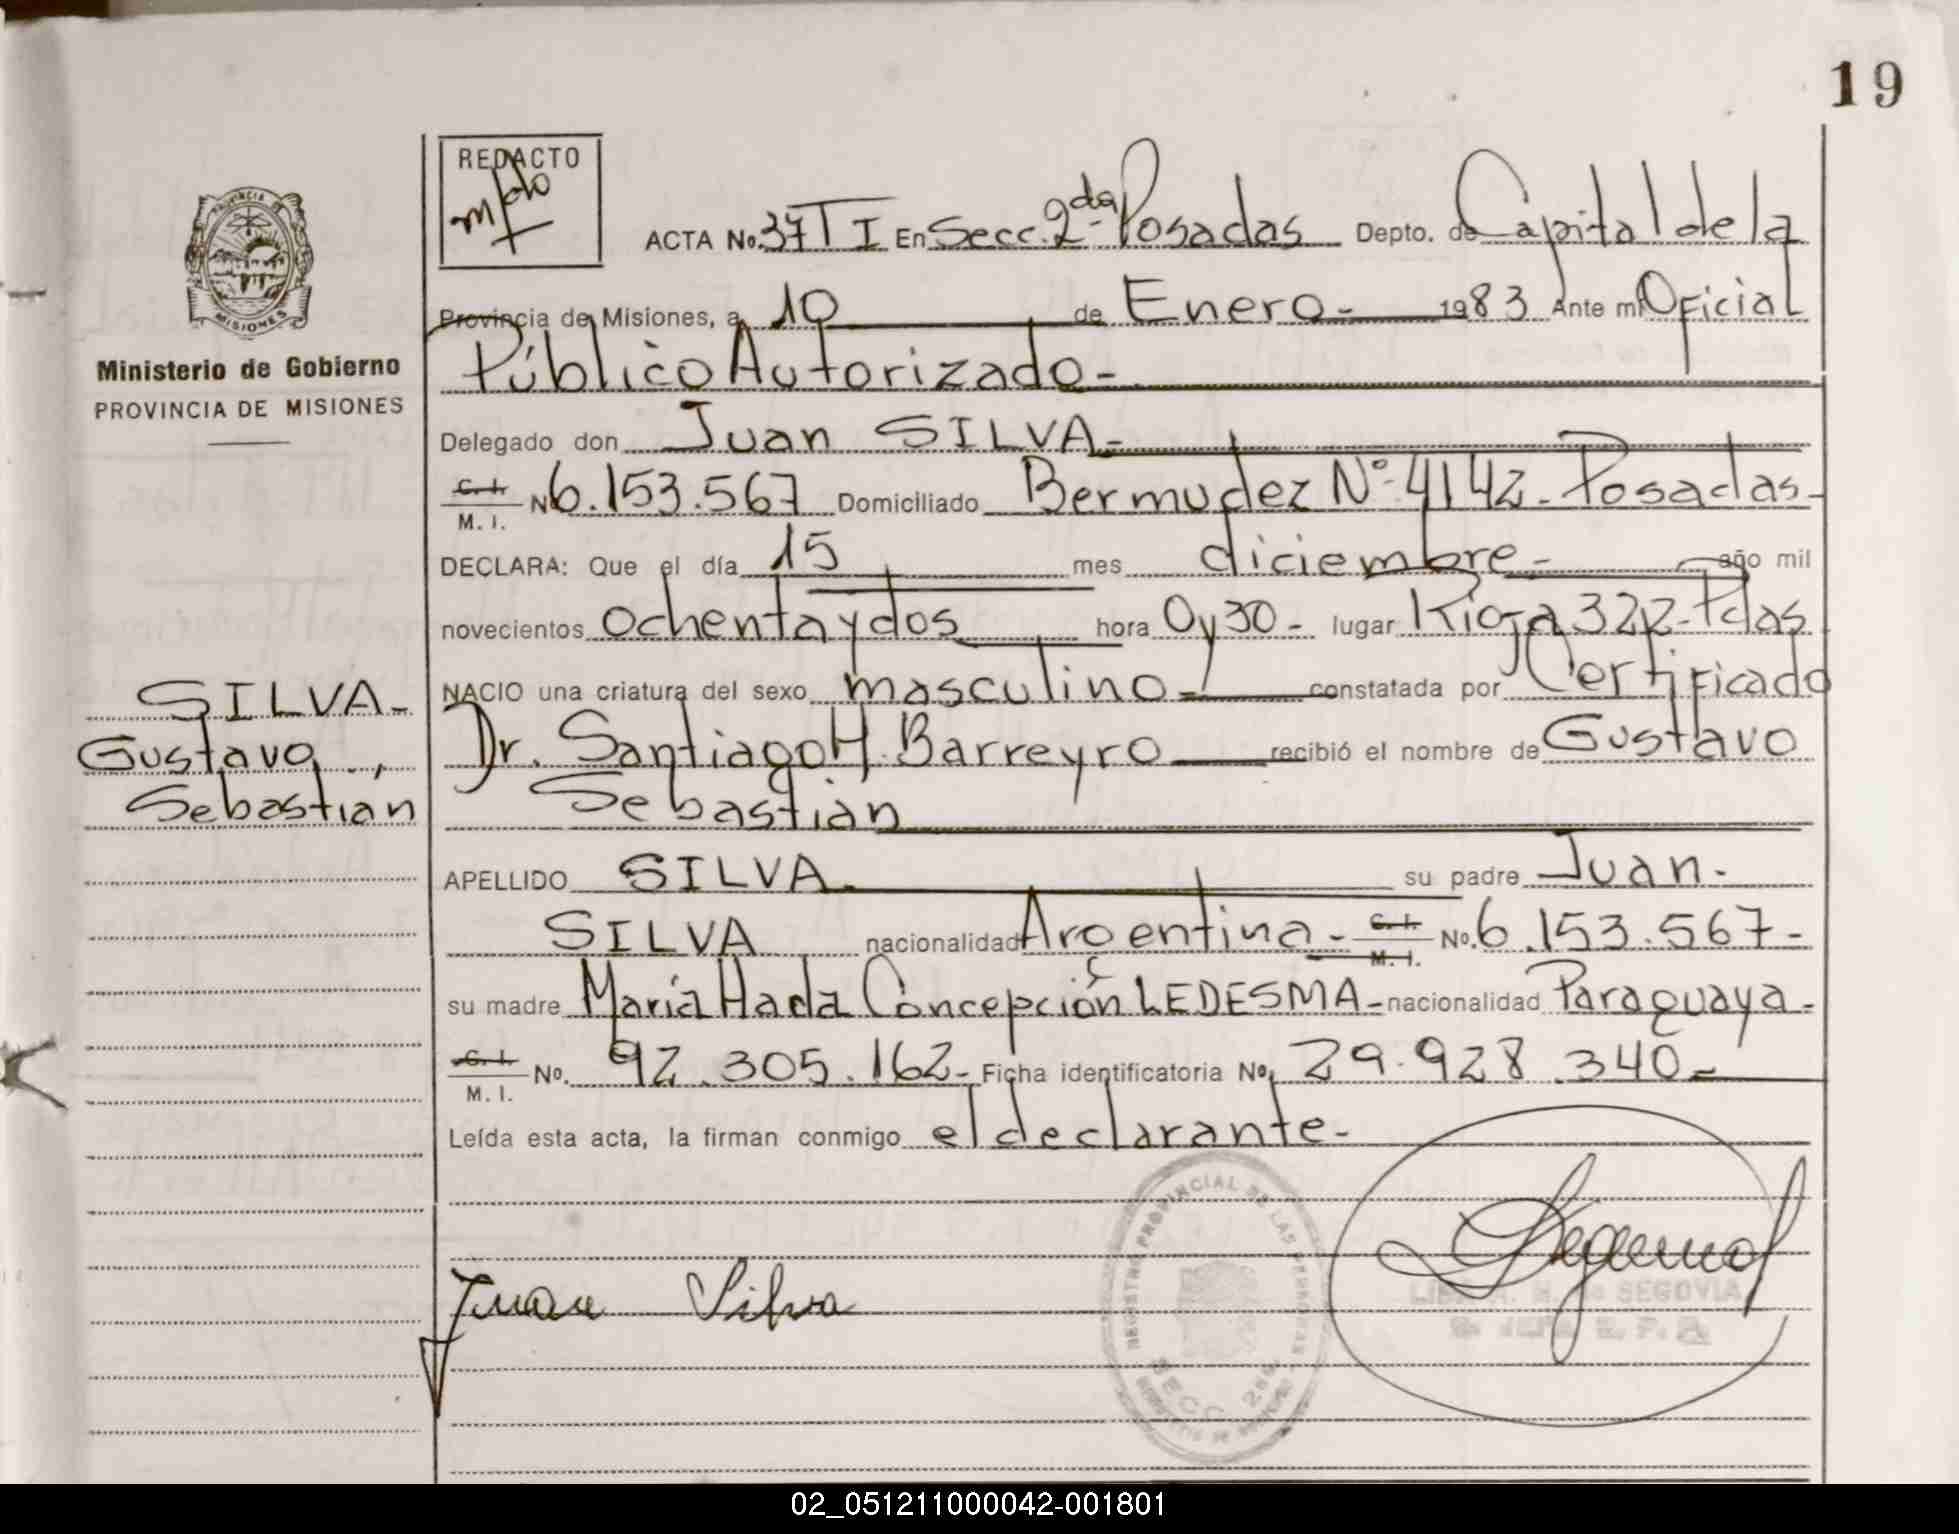 19
REDACTO
ACTA No. 37 T I En Secc. 2da. Posadas Depto. de Capital de la
Provincia de Misiones, a 10 de Enero - 1983 Ante mi Oficial
Público Autorizado -
Ministerio de Gobierno
PROVINCIA DE MISIONES
Delegado don Juan SILVA -
C. I. M. I. Nº 6.153.567 Domiciliado Bermudez Nº 4142 - Posadas -
DECLARA: Que el día 15 mes diciembre - año mil
novecientos ochenta y dos hora 0 y 30 - lugar Rioja 322 - Pdas
SILVA -
Gustavo
Sebastian
NACIO una criatura del sexo masculino - constatada por Certificado
Dr. Santiago H. Barreyro recibió el nombre de Gustavo
Sebastian
APELLIDO SILVA - su padre Juan -
SILVA nacionalidad Argentina - C. I. M. I. No. 6.153.567 -
su madre María Hada Concepción LEDESMA - nacionalidad Paraguaya -
C. I. M. I. No. 92.305.162 - Ficha identificatoria No. 29.928.340 -
Leída esta acta, la firman conmigo el declarante -
REGISTRO PROVINCIAL DE LAS PERSONAS
SECC. 2da.
Juan Silva
SEGOVIA
02_051211000042-001801